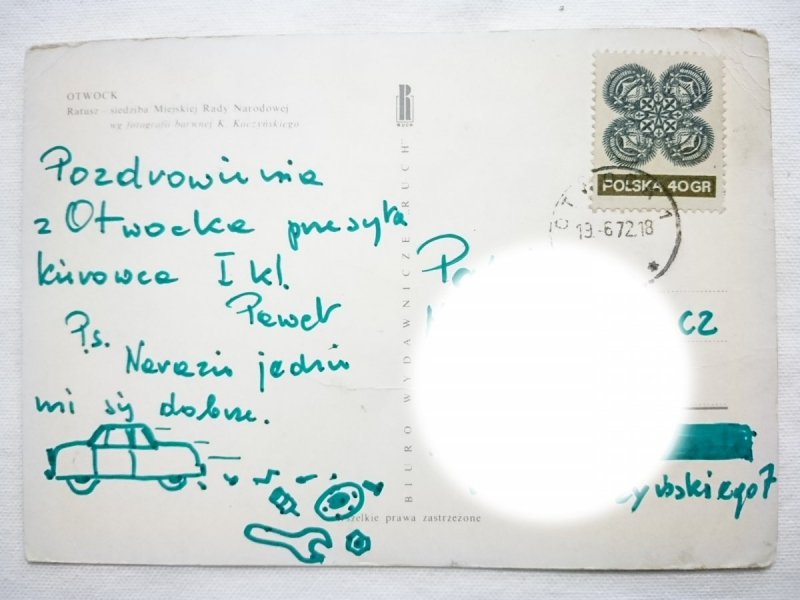 OTWOCK
Ratusz - siedziba Miejskiej Rady Narodowej
wg fotografii barwnej K. Kaczyńskiego
Pozdrowienia
z Otwocka przesyła
kierowca I kl.
Paweł
Ps. Narazie jedzie
mi się dobrze.
BIURO WYDAWNICZE RUCH
RUCH
wszelkie prawa zastrzeżone
POLSKA 40 GR
OTWOCK 1
19.-6.72.18
cz
7